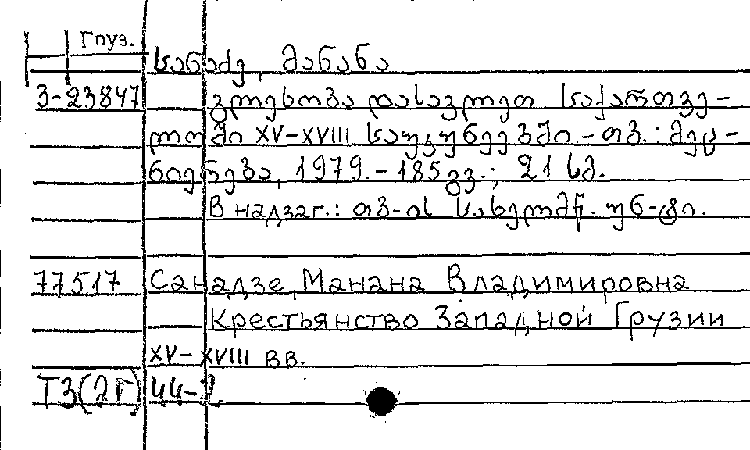 Груз.
სანაძე, მანანა
3-23847 გლეხობა დასავლეთ საქართვე-
ლოში XV-XVIII საუკუნეებში. - თბ.: მეც-
ნიერება, 1979. - 185 გვ.; 21 სმ.
В надзаг.: თბ-ის სახელმწ. უნ-ტი.
77517 Санадзе, Манана Владимировна
Крестьянство Западной Грузии
XV-XVIII вв.
Т3(2Г)44-2